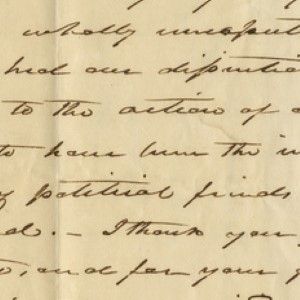 wholly unexpect
had our disposition
to the action of a
to have been the in
political friends
d. – I thank you
o, and for your p